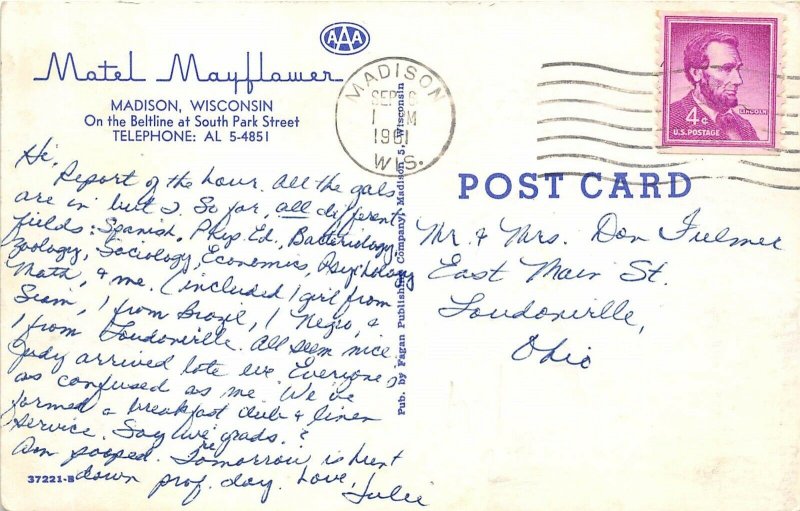 AAA
Motel Mayflower
MADISON, WISCONSIN
On the Beltline at South Park Street
TELEPHONE: AL 5-4851
Hi,
Report of the hour. All the gals
are in but 2. So far, all different
fields: Spanish, Phys. Ed., Bacteriology,
Zoology, Sociology, Economics, Psychology
Math, & me. (included 1 girl from
Siam, 1 from Brazil, 1 Negro, &
1 from Loudonville. All seem nice.
Judy arrived late eve. Everyone's
as confused as me. We've
formed a breakfast club & linen
service. Say we're grads.?
Am pooped. Tomorrow is hunt
down prof. day. Love,
Julie
37221-B
Pub. by Fagan Publishing Company, Madison 5, Wisconsin
MADISON
SEP 6
1 M
1961
WIS.
LINCOLN
4¢
U.S. POSTAGE
POST CARD
Mr. & Mrs. Don Fulmer
East Main St.
Loudonville,
Ohio